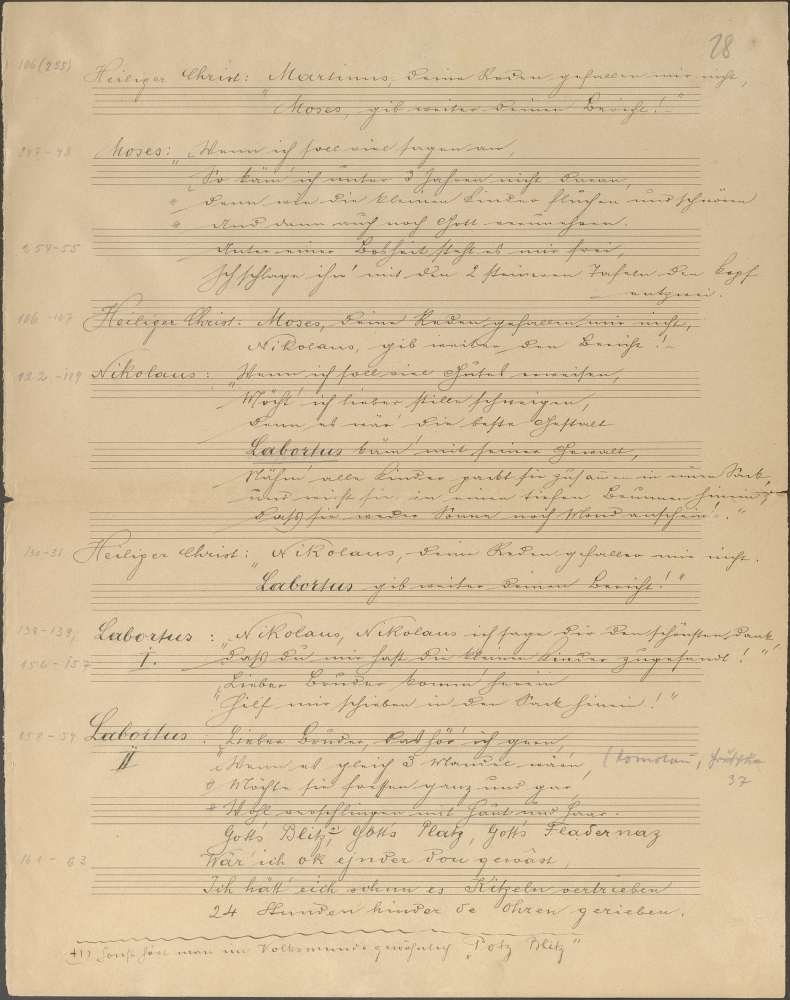 18
106(255)
Heiliger Christ: Martinus, deine Reden gefallen mir nicht,
"Moses, gib weiter deinen Bericht!"
247-48
Moses: "Wenn ich soll viel sagen an,
So käm' ich unter 3 Jahren nicht daran,
Denn wie die kleinen Kinder fluchen und schwören
Und dann auch noch Gott verunehren.
254-55
Unter einer Bosheit steht es mir frei,
Ich schlage ihn' mit den 2 steinernen Tafeln den Kopf
entzwei.
106-107
Heiliger Christ: Moses, deine Reden gefallen mir nicht,
Nikolaus, gib weiter den Bericht!
122-129
Nikolaus: "Wenn ich soll viel Gutes erweisen,
Möcht' ich lieber stille schweigen,
Denn es wär' die beste Gestalt
Labortus käm' mit seiner Gewalt,
Nähm' alle Kinder packt sie zusammen in einen Sack,
und wirft sie in einen tiefen Brunnen hinein,
Daß sie weder Sonne noch Mond anschein'."
130-31
Heiliger Christ: "Nikolaus, deine Reden gefallen mir nicht.
Labortus gib weiter deinen Bericht!"
138-139,
Labortus: Nikolaus, Nikolaus ich sage dir den schönsten Dank,
156-157
I. daß du mir hast die kleinen Kinder zugesandt!"
"Lieber Bruder komm' herein
Hilf mir schieben in den Sack hinein!"
158-59
Labortus: Lieber Bruder, das hör' ich gern,
II "Wenn es gleich 3 Mandel wärn, (Komotau,
37
Möchte sie fressen ganz und gar,
Wohl verschlingen mit Haut und Haar.
Gotts Blitz, Gotts Platz, Gotts Fladernaz
161-63
Wär' ich ok ejnder dou gewäst,
Ich hätt' eich schun es Kitzeln vertrieben
24 Stunden hinder de Ohren gerieben.
+1) Sonst hört man im Volksmunde gewöhnlich "Potz Blitz"